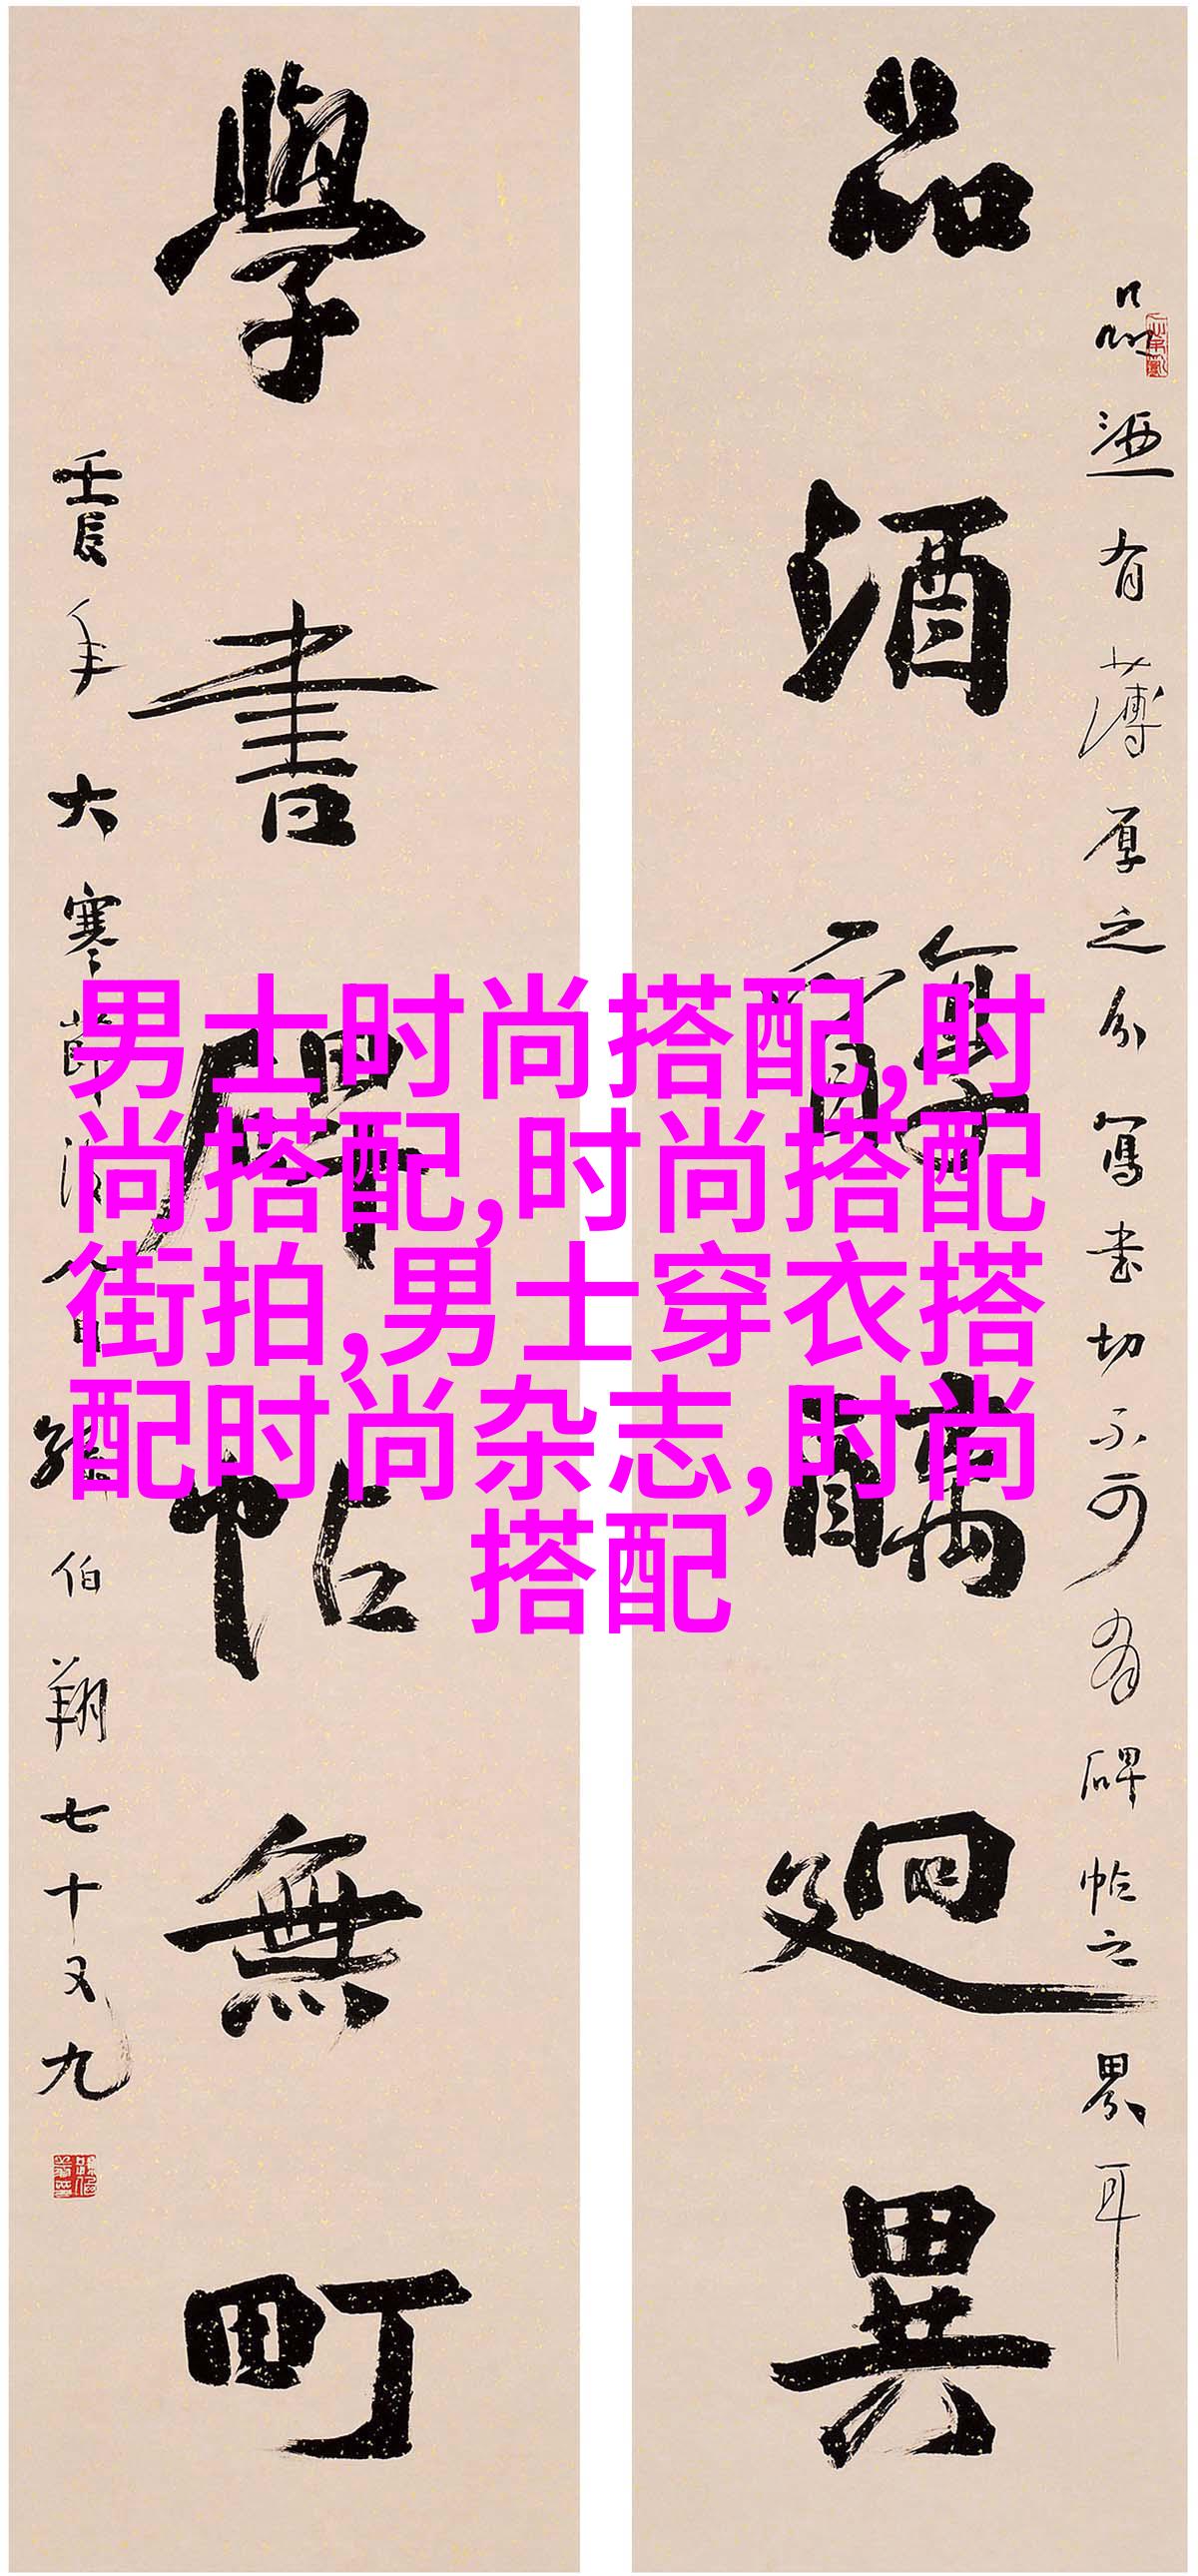 品酒醇醨迥異
品酒有薄厚之分寫书切不可有碑帖之界耳
學書碑帖無町
壬辰年大寒節後八日孫伯翔七十又九
男士时尚搭配,时
尚搭配,时尚搭配
街拍,男士穿衣搭
配时尚杂志,时尚
搭配